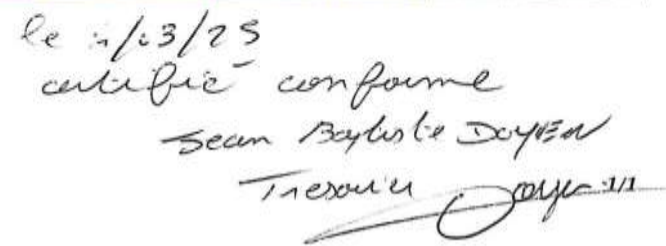 le /03/25
certifié conforme
Jean Baptiste DOYEN
Tresorier 1/1